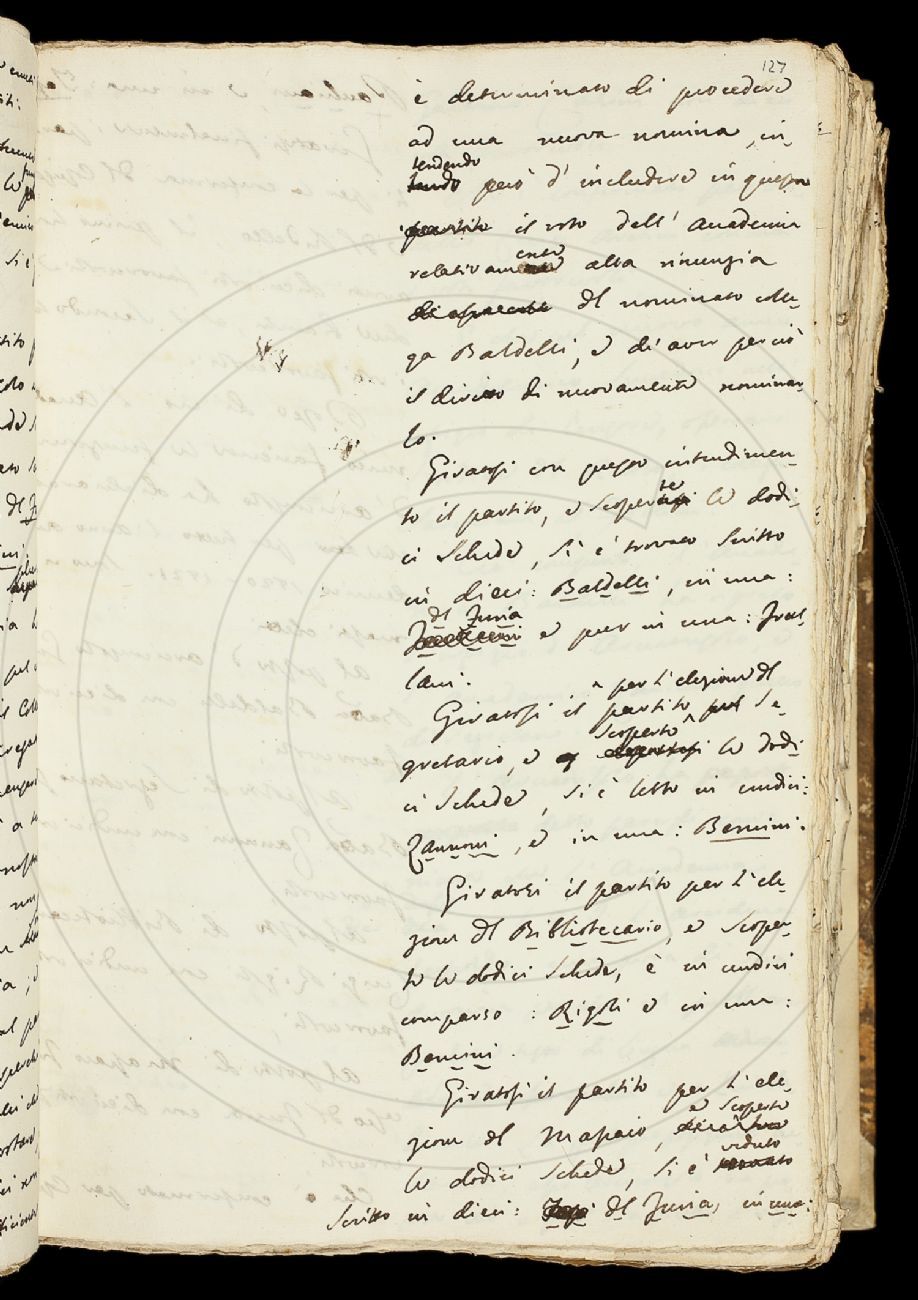 127
è determinato di procedere
ad una nuova nomina, in-
tendendo
tendo però d'includere in questo
partito il voto dell' Accademia
relativamente alla rinunzia
del nominato colle-
ga Baldelli, e di aver perciò
il diritto di nuovamente nominar-
lo.
Giratosi con questo intendimen-
to il partito, e scoperte le dodi-
ci Schede, si è trovato scritto
in dieci: Baldelli, in una:
del Furia
e pur in una: Frul-
lani.
^ per l'elezione del
Giratosi il partito ^ pel Se-
scoperto
gretario, e le dodi-
ci Schede, si è letto in undici:
Zannoni, e in una: Bencini.
Giratosi il partito per l'ele-
zione del Bibliotecario, e scoper-
to le dodici Schede, è in undici
comparso: Rigoli e in una:
Bencini.
Giratosi il partito per l'ele-
e scoperto
zione del Massaio,
veduto
le dodici Schede, si è trovato
scritto in dieci: del Furia, in una: